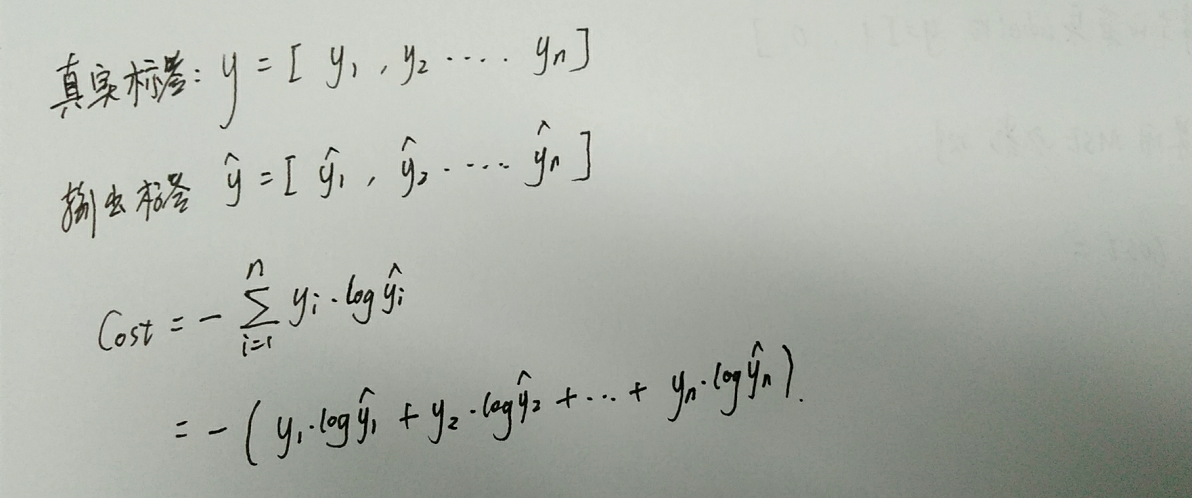 真实标签: y = [ y₁ , y₂ .... yₙ ]
输出标签 ŷ = [ ŷ₁ , ŷ₂ .... ŷₙ ]
Cost = - ∑ᵢ₌₁ⁿ yᵢ · log ŷᵢ
= - ( y₁·log ŷ₁ + y₂·log ŷ₂ + ... + yₙ·log ŷₙ ).